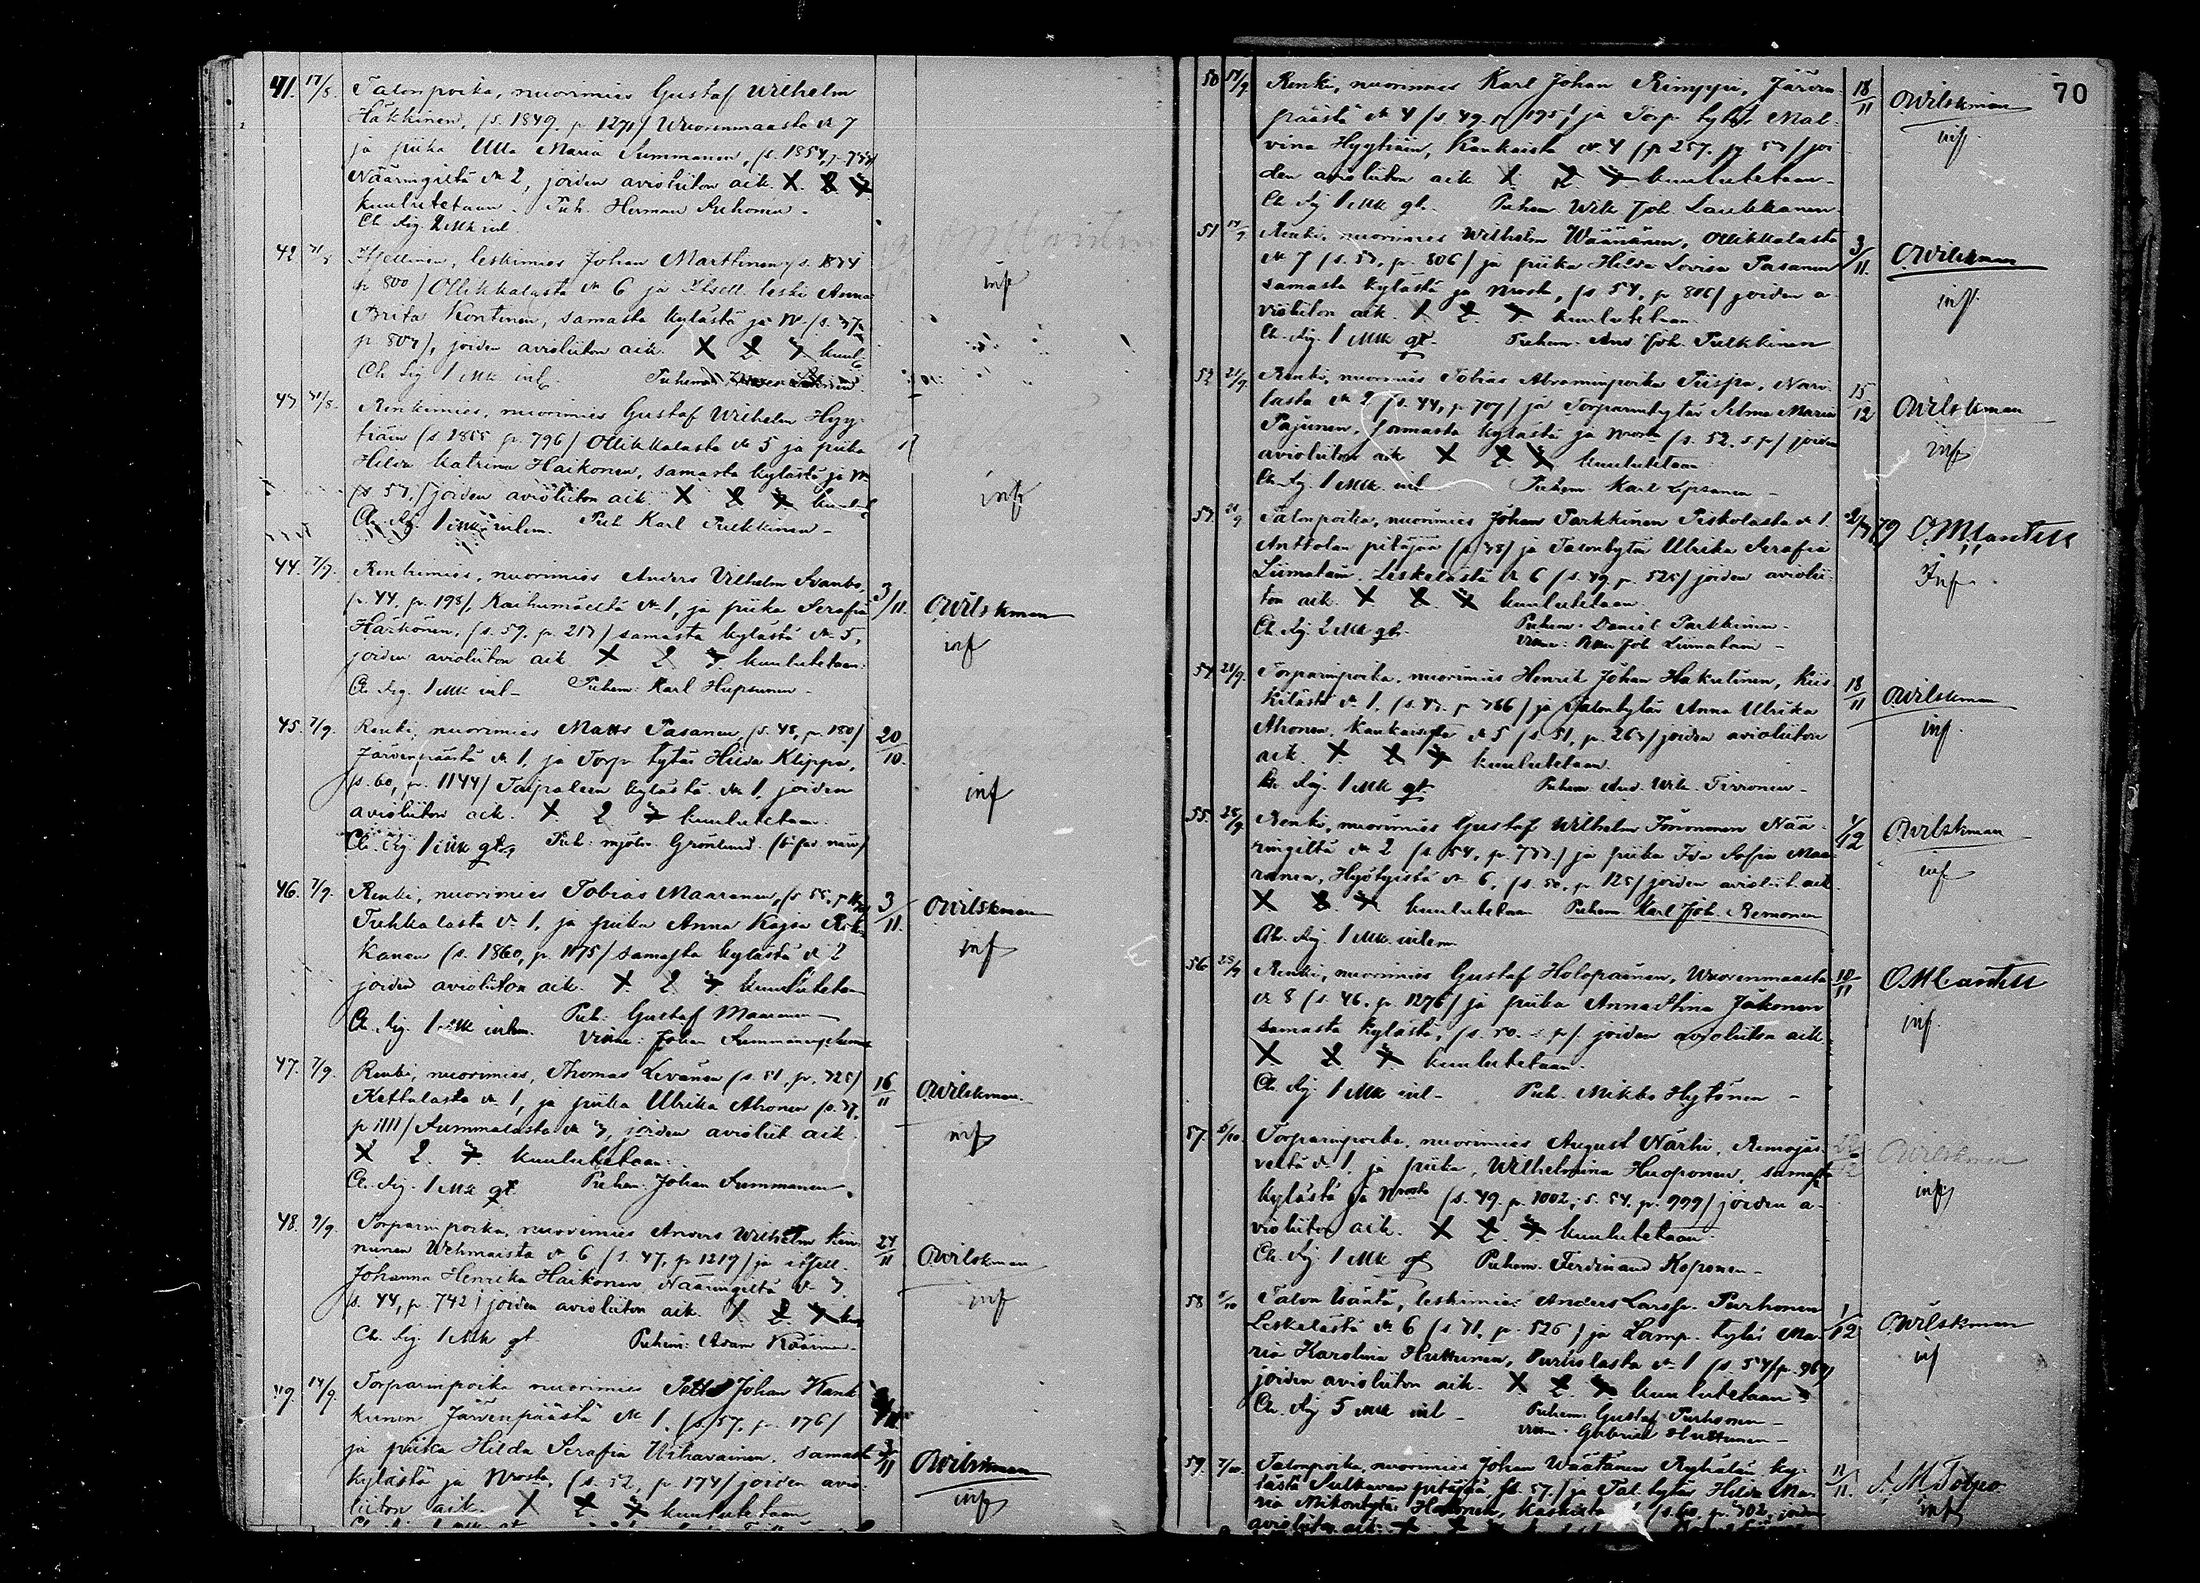 70
41. 17/8. Talonpoika, nuorimies Gustaf Wilhelm
Häkkinen, (s. 1849. p. 1271) Wuorenmaasta № 7
ja piika Ulla Maria Summanen, (s. 1854, p.
Närringiltä № 2, joiden avioliiton aik. X. 2 3
kuulutetaan. Puh. Herman Auhonen.
Ch. Sig. 2 Mk inl.
42 31/8 Itsellinen, leskimies Johan Marttinen, (s. 1834
p. 800) Ollikkalasta № 6 ja Itsell. leski Anna
Brita Kontinen, samasta kylästä ja №. (s. 37,
p. 807), joiden avioliiton aik. X 2 3 kuul
Ch. Sig 1 Mk inl. Puhem.
inf
43 31/8. Renkimies, nuorimies Gustaf Wilhelm Hyy-
tiäin (s. 1855 p. 796) Ollikkalasta № 5 ja piika
Hilda Katrina Haikonen, samasta kylästä ja №
(s. 57.) joiden avioliiton aik X 2 3 kuulut
Ch. Sig. 1 Mk inlem. Puh Karl Pulkkinen -
inf
44. 7/9. Renkimies, nuorimies Anders Vilhelm Svanbo,
(s. 44, p. 198), Kaihumäeltä № 1, ja piika Serafia
Härkönen, (s. 59. p. 213) samasta kylästä № 5,
joiden avioliiton aik X. 2 3. kuulutetaan.
Ch. Sig. 1 Mk inl - Puhem: Karl Hupsunen -
3/11. OWilskman
inf
45. 7/9. Renki, nuorimies Matts Pasanen, (s. 48, p. 180)
Järvenpäästä № 1, ja Torp. tytär Hilda Klippa,
(s. 60, p. 1144) Taipaleen kylästä № 1, joiden
avioliiton aik. X. 2 3 kuulutetaan.
Ch. Sig 1 Mk gt. Puh: mjöln. Grönlund.
20/10.
inf
46. 7/9. Renki, nuorimies Tobias Maaranen, (s. 55, p.
Tuhkalasta № 1, ja piika Anna Kajsa
kanen (s. 1860, p. 1175) samasta kylästä № 2
joiden avioliiton aik. X. 2 3 kuulutetaan
Ch. Sig. 1 Mk inlem. Puh: Gustaf Maaranen
Vime: Johan Summanen
3/11. OWilskman
inf
47. 7/9. Renki, nuorimies, Thomas Levänen (s. 51. p. 725)
Kettulasta № 1, ja piika Ulrika Ahonen (s. 37,
p 1111) Summalasta № 3, joiden avioliit. aik.
X 2. 3. kuulutetaan.
Ch. Sig. 1 Mk gt. Puhem. Johan Summanen.
16/11 OWilskman
inf
48. 9/9. Torparinpoika, nuorimies Anders Wilhelm Kin-
nunen Wehmaista № 6 (s. 47, p 1219) ja itsell.
Johanna Henrika Haikonen Närringiltä № 3,
(s. 44, p. 742) joiden avioliiton aik. X 2 3 kuu
Ch. Sig. 1 Mk gt Puhem: Adam Käärme
24/11 OWilskman
inf
49. 14/9. Torparinpoika nuorimies Petter Johan Kank-
kunen Järvenpäästä № 1. (s. 57. p. 176)
ja piika Hilda Serafia Wihavainen, samasta
kylästä ja Nrosta, (s. 52, p. 174) joiden avio-
liiton aik. X 2 3 kuulutetaan
3/11 OWilskman
inf
50 14/9 Renki, nuorimies Karl Johan Rimppi, Järven-
päästä № 4 (s. 49. p. 195) ja Torp. tytär Mal-
vina Hyytiäin, Kankaista № 4 (p 257. s. 57) joi-
den avioliiton aik X. 2 3 kuulutetaan -
Ch Sig 1 Mk gt. Puhem. Wilh Joh. Laukkanen
18/11 OWilskman
inf
51 14/9 Renki, nuorimies Wilhelm Wäänänen, Ollikkalasta
№ 7 (s. 57, p. 806) ja piika Hilda Lovisa Pasanen
samasta kylästä ja Nrosta, (s. 54, p 806) joiden a-
violiiton aik. X 2. 3 kuulutetaan
Ch. Sig. 1 Mk gt. Puhem. And. Joh. Pulkkinen
3/11. OWilskman
inf.
52 21/9 Renki, nuorimies Tobias Abraminpoika Piispa, Nar-
lasta № 2 (s. 44, p 707) ja Torparintytär Selma Maria
Pajunen, samasta kylästä ja Nrosta (s. 52. s.p) joiden
avioliiton aik X 2. X kuulutetaan
Ch. Sig. 1 Mk inl Puhem. Karl Lipsanen -
15/12 OWilskman
inf
53. 21/9 Talonpoika, nuorimies Johan Parkkinen Piskolasta № 1
Anttolan pitäjää (s. 38) ja Talontytär Ulrika Serafia
Liimatain Leskelästä № 6 (s. 49. p. 525) joiden aviolii-
ton aik. X. 2. 3 kuulutetaan
Ch. Sig. 2 Mk gt. Puhem. Daniel Parkkinen -
Vime: Joh Liimatain -
79 O. M. Cantell
Inf
54 28/9. Torparinpoika, nuorimies Henrik Johan Hakulinen, Kiis-
kilästä № 1, (s. 47. p 766) ja Talontytär Anna Ulrika
Ahonen, Kankaista № 5 (s. 51, p. 263) joiden avioliiton
aik. X. 2 3 kuulutetaan.
Ch. Sig. 1 Mk gt. Puhem. And. Wilh. Tirronen -
18/11 OWilskman
inf.
55. 28/9. Renki, nuorimies Gustaf Wilhelm Immonen Nää-
ringiltä № 2 (s. 54, p. 733) ja piika Ida Sofia Maa-
ranen, Hyötyistä № 6. (s. 50. p. 125) joiden avioliit. aik
X 2. 3. kuulutetaan Puhem. Karl Joh. Remonen
Ch. Sig. 1 Mk. inlem.
1/12 OWilskman
inf
56 28/9 Renki, nuorimies Gustaf Holopainen, Wuorenmaasta
№ 8 (s. 46. p 1276) ja piika Anna Stina Jäkonen
samasta kylästä, (s. 50. s. p). joiden avioliiton aik
X 2 3 kuulutetaan.
Ch. Sig. 1 Mk inl - Puh. Mikko Hytönen -
10/11 O M Cantell
inf.
57. 5/10 Torparinpoika, nuorimies August Närhi, Remojär-
veltä № 1, ja piika, Wilhelmina Huoponen, samasta
kylästä ja Nrosta (s. 49. p. 1002; s. 54. p. 999) joiden a-
violiiton aik. X 2. 3 kuulutetaan.
Ch. Sig. 1 Mk gt Puhem. Ferdinand Koponen -
OWilskman
inf
58 5/10 Talon isäntä, leskimies Anders Larssp. Purhonen
Leskelästä № 6 (s 31, p. 526) ja Lamp. tytär Ma-
ria Karolina Huttunen, Purholasta № 1 (s. 54, p. 967)
joiden avioliiton aik. X 2. 3. kuulutetaan
Ch. Sig 5 Mk inl - Puhem. Gustaf Purhonen -
Vime: Gabriel Huttunen -
1/12 OWilskman
inf
59. 7/10. Talonpoika, nuorimies Johan Wäätänen Ryhälän ky-
lästä Sulkavan pitäjää, (s. 57.) ja Tal. tytär Hilda Ma-
ria Mikontytär Hakonen, (s. 60, p. 302, joiden
avioliiton aik. X
11/11. A. M. Tolpo
inf